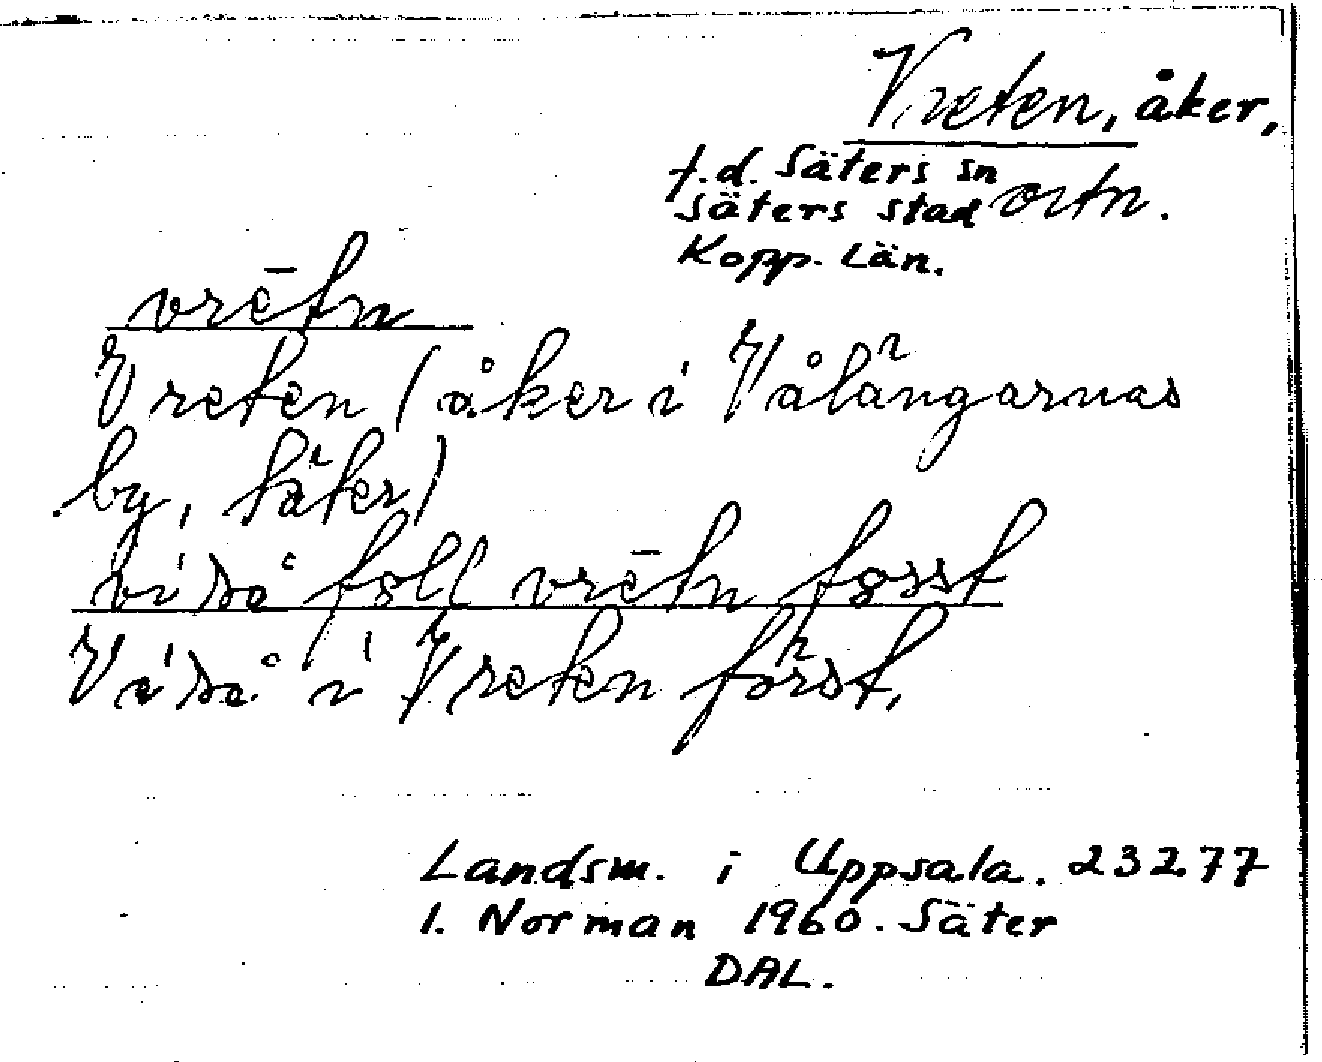 Vreten, åker,
f.d. Säters sn
Säters stad ortn.
Kopp. Län.
vrētn
Vreten (åker i Vålängarnas
by, Säter)
vi så
vrētn
Vi så i Vreten först,
Landsm. i Uppsala. 23277
I. Norman 1960. Säter
DAL.